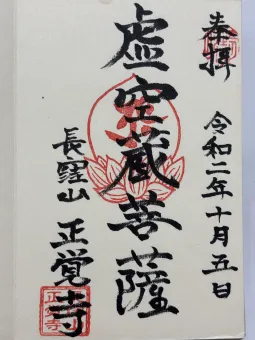 奉拝
令和二年十月五日
虚空蔵菩薩
長窪山
正覚寺
正覚寺